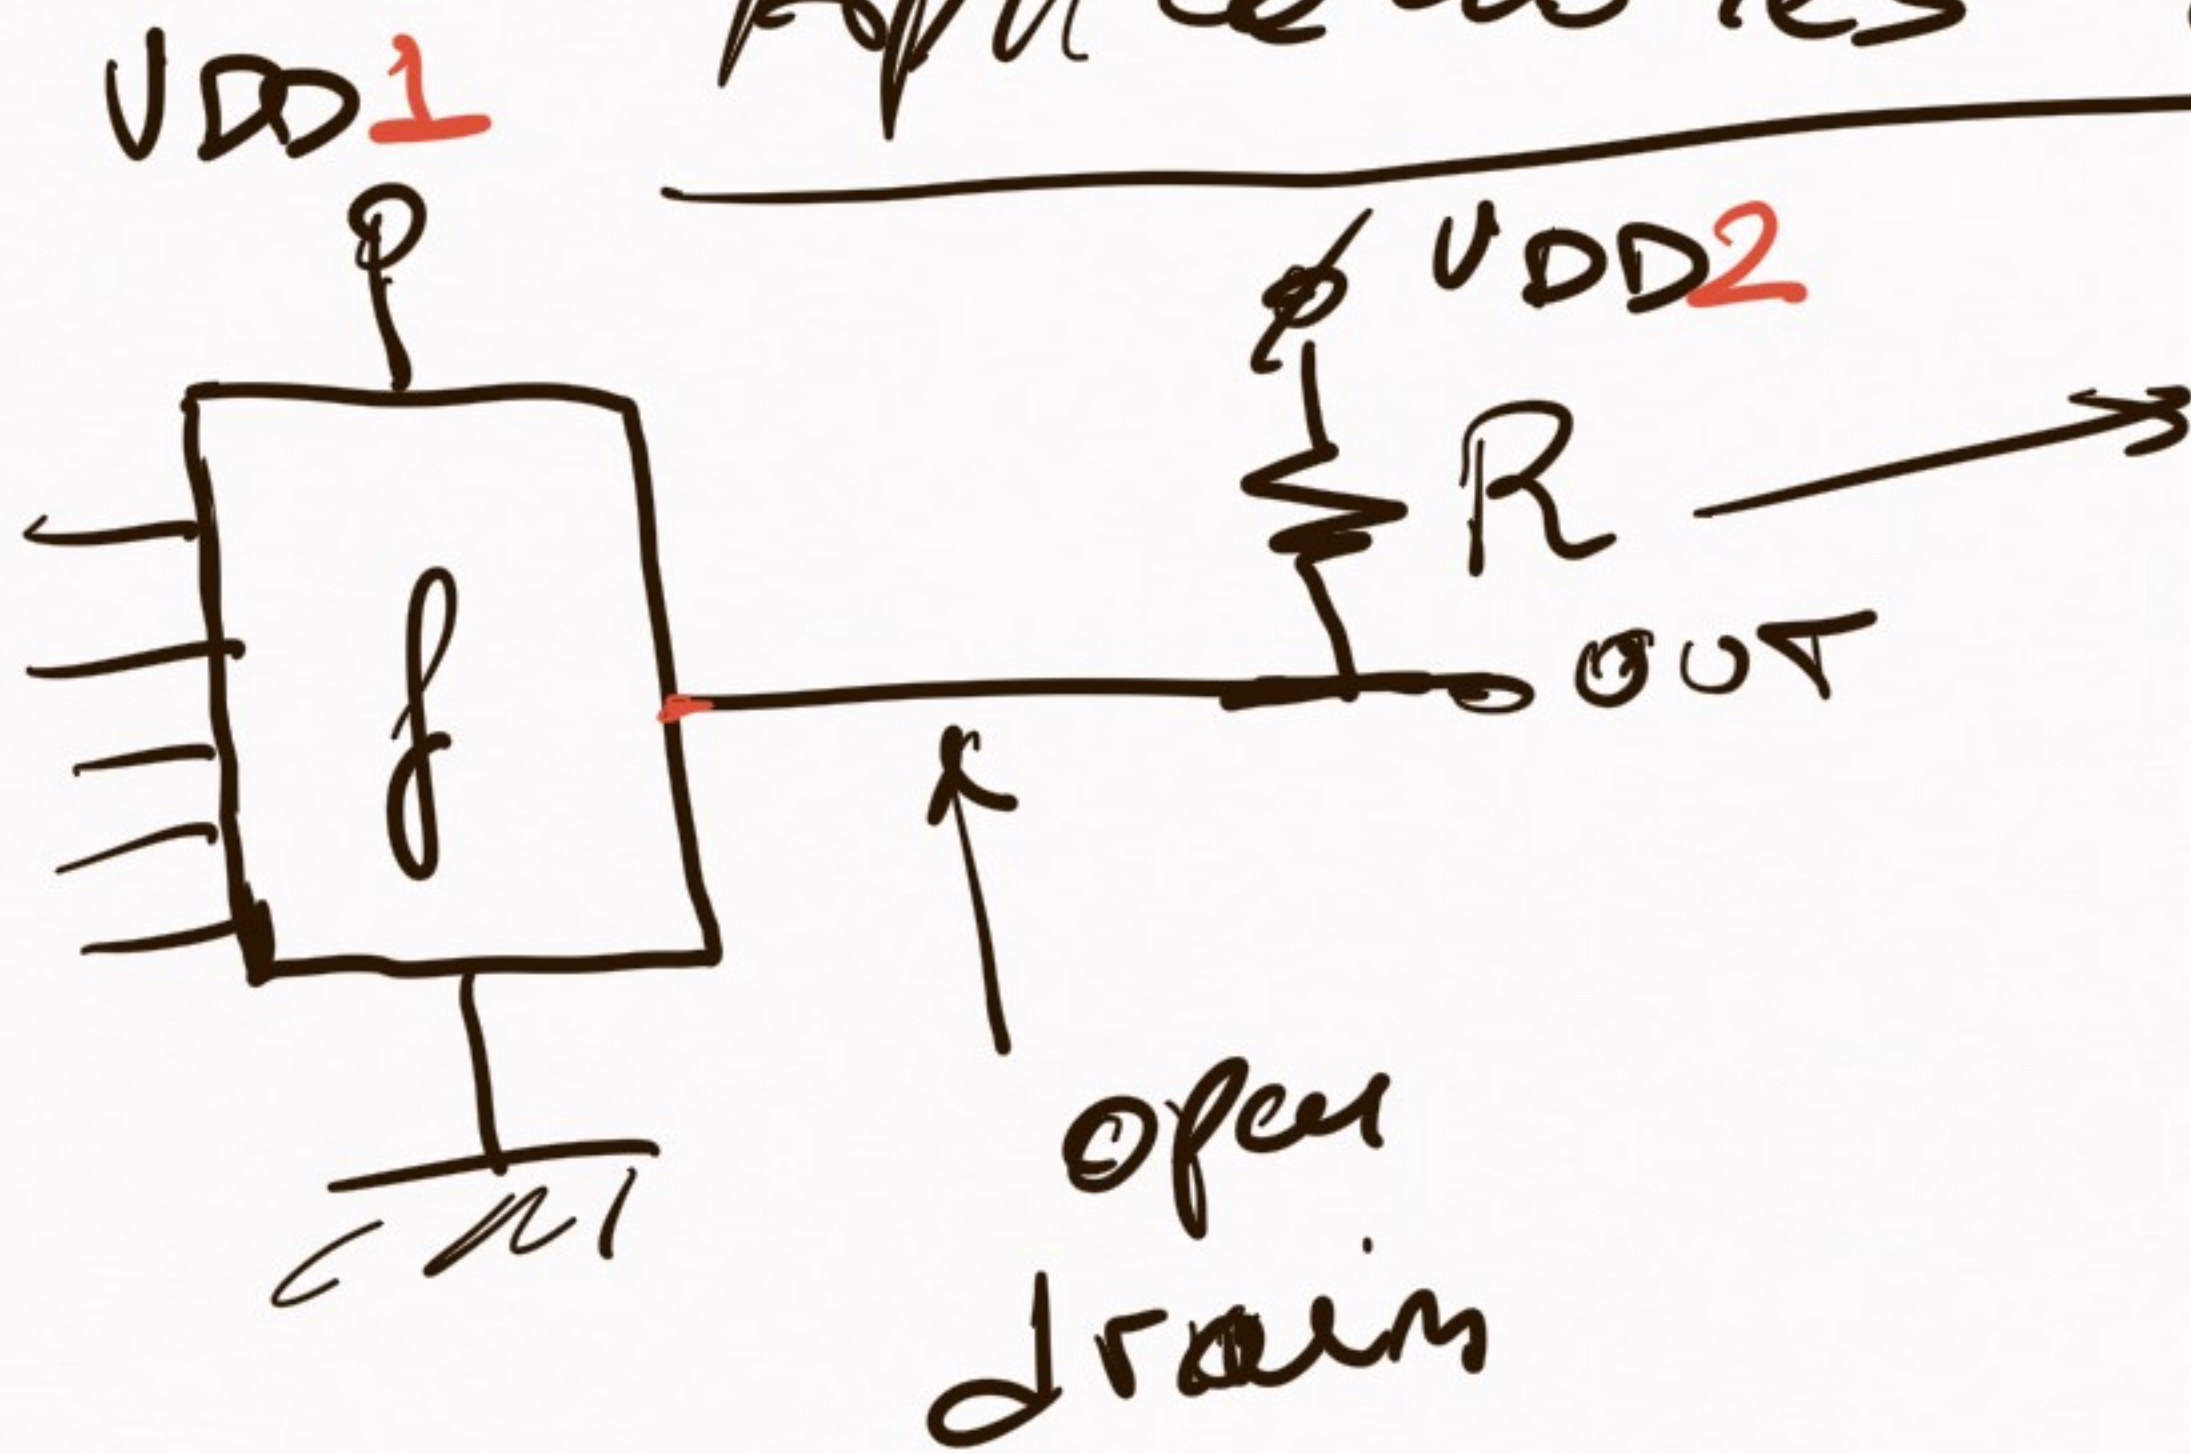 VDD1
VDD2
R
f
OUT
open
drain